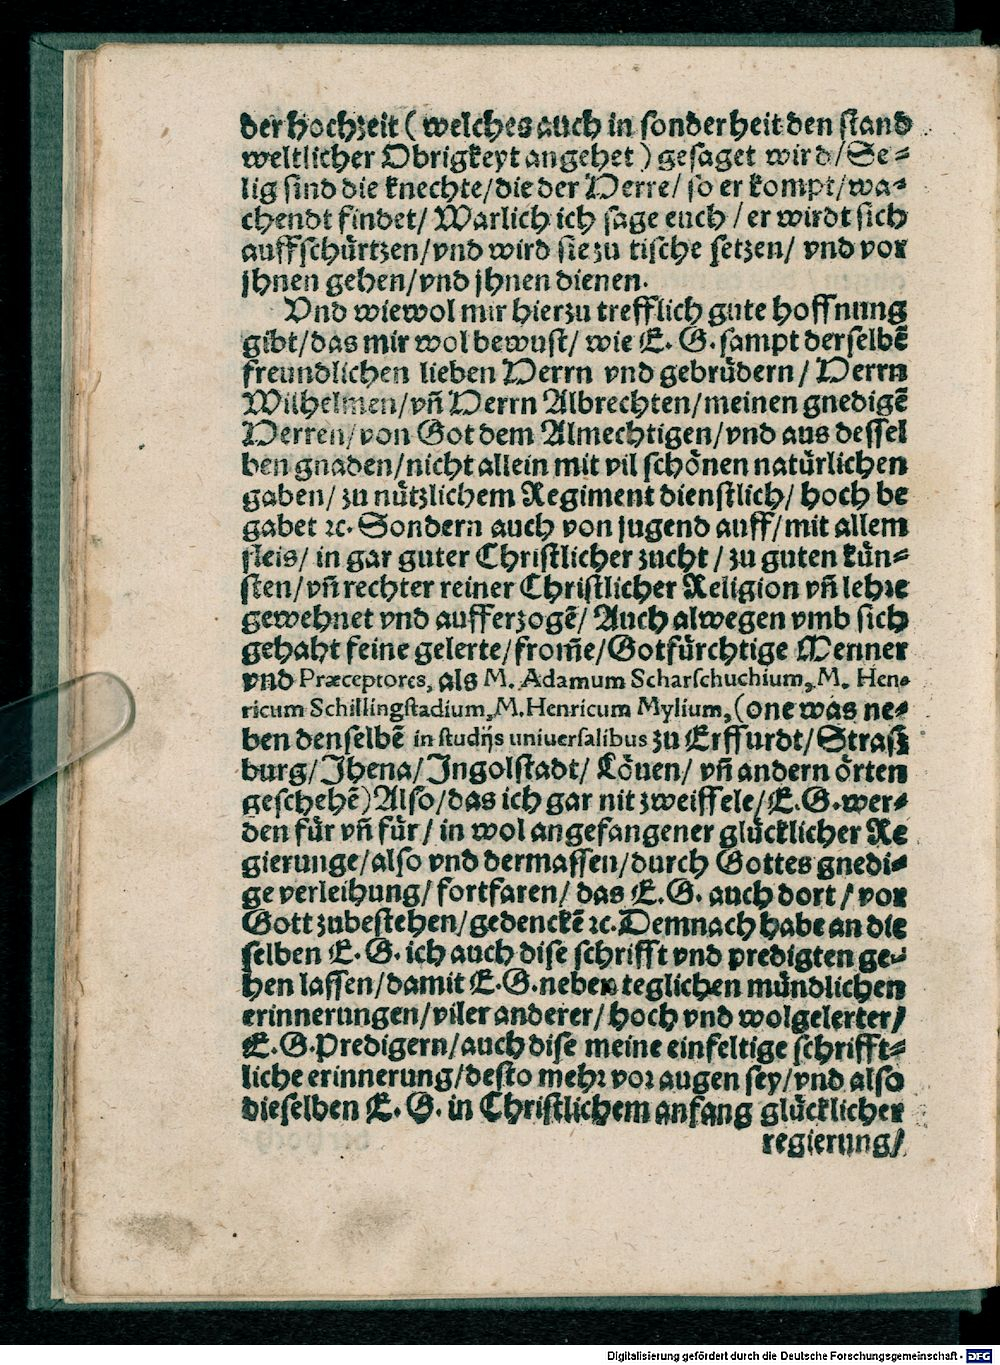 der hochzeit ( welches auch in sonderheit den stand
weltlicher Obrigkeyt angehet ) gesaget wird/ Se⸗
lig sind die knechte/die der Herre/ so er kompt/wa⸗
chendt findet/ Warlich ich sage euch / er wirdt sich
auffschürtzen/vnd wird sie zu tische setzen/ vnd vor
jhnen gehen/vnd jhnen dienen.
Vnd wiewol mir hierzu trefflich gute hoffnung
gibt/das mir wol bewust/ wie E. G. sampt derselbē
freundlichen lieben Herrn vnd gebrüdern/ Herrn
Wilhelmen/vñ Herrn Albrechten/meinen gnedigē
Herren/von Got dem Almechtigen/vnd aus dessel
ben gnaden/nicht allein mit vil schönen natürlichen
gaben/ zu nützlichem Regiment dienstlich/ hoch be
gabet ꝛc. Sondern auch von jugend auff/mit allem
fleis/ in gar guter Christlicher zucht / zu guten kün⸗
sten/vñ rechter reiner Christlicher Religion vñ lehre
gewehnet vnd aufferzogē/ Auch alwegen vmb sich
gehabt feine gelerte/from̃e/Gotfürchtige Menner
vnd Præceptores, als M. Adamum Scharschuchium, M. Hen⸗
ricum Schillingstadium, M. Henricum Mylium, (one was ne⸗
ben denselbē in studijs uniuersalibus zu Erffurdt/ Straß
burg/ Jhena/ Ingolstadt/ Löuen/ vñ andern örten
geschehē) Also/das ich gar nit zweiffele/E.G.wer⸗
den für vñ für/ in wol angefangener glücklicher Re
gierunge/also vnd dermassen/durch Gottes gnedi⸗
ge verleihung/ fortfaren/ das E.G. auch dort / vor
Gott zubestehen/gedenckē ꝛc. Demnach habe an die
selben E. G. ich auch dise schrifft vnd predigten ge⸗
hen lassen/damit E.G.neben teglichen mündlichen
erinnerungen/viler anderer/ hoch vnd wolgelerter/
E. G. Predigern/auch dise meine einfeltige schrifft⸗
liche erinnerung/desto mehr vor augen sey/vnd also
dieselben E. G. in Christlichem anfang glücklicher
regierung/
Digitalisierung gefördert durch die Deutsche Forschungsgemeinschaft - DFG